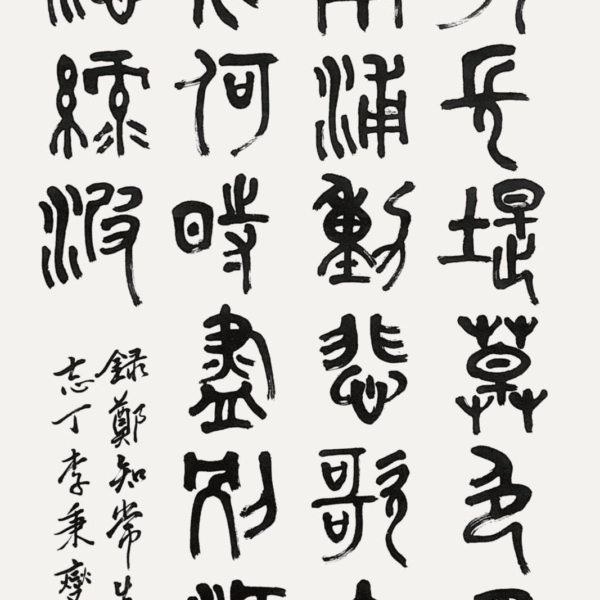 長堤草色
南浦動悲歌
何時盡別淚
添綠波
録鄭知常
志丁李秉